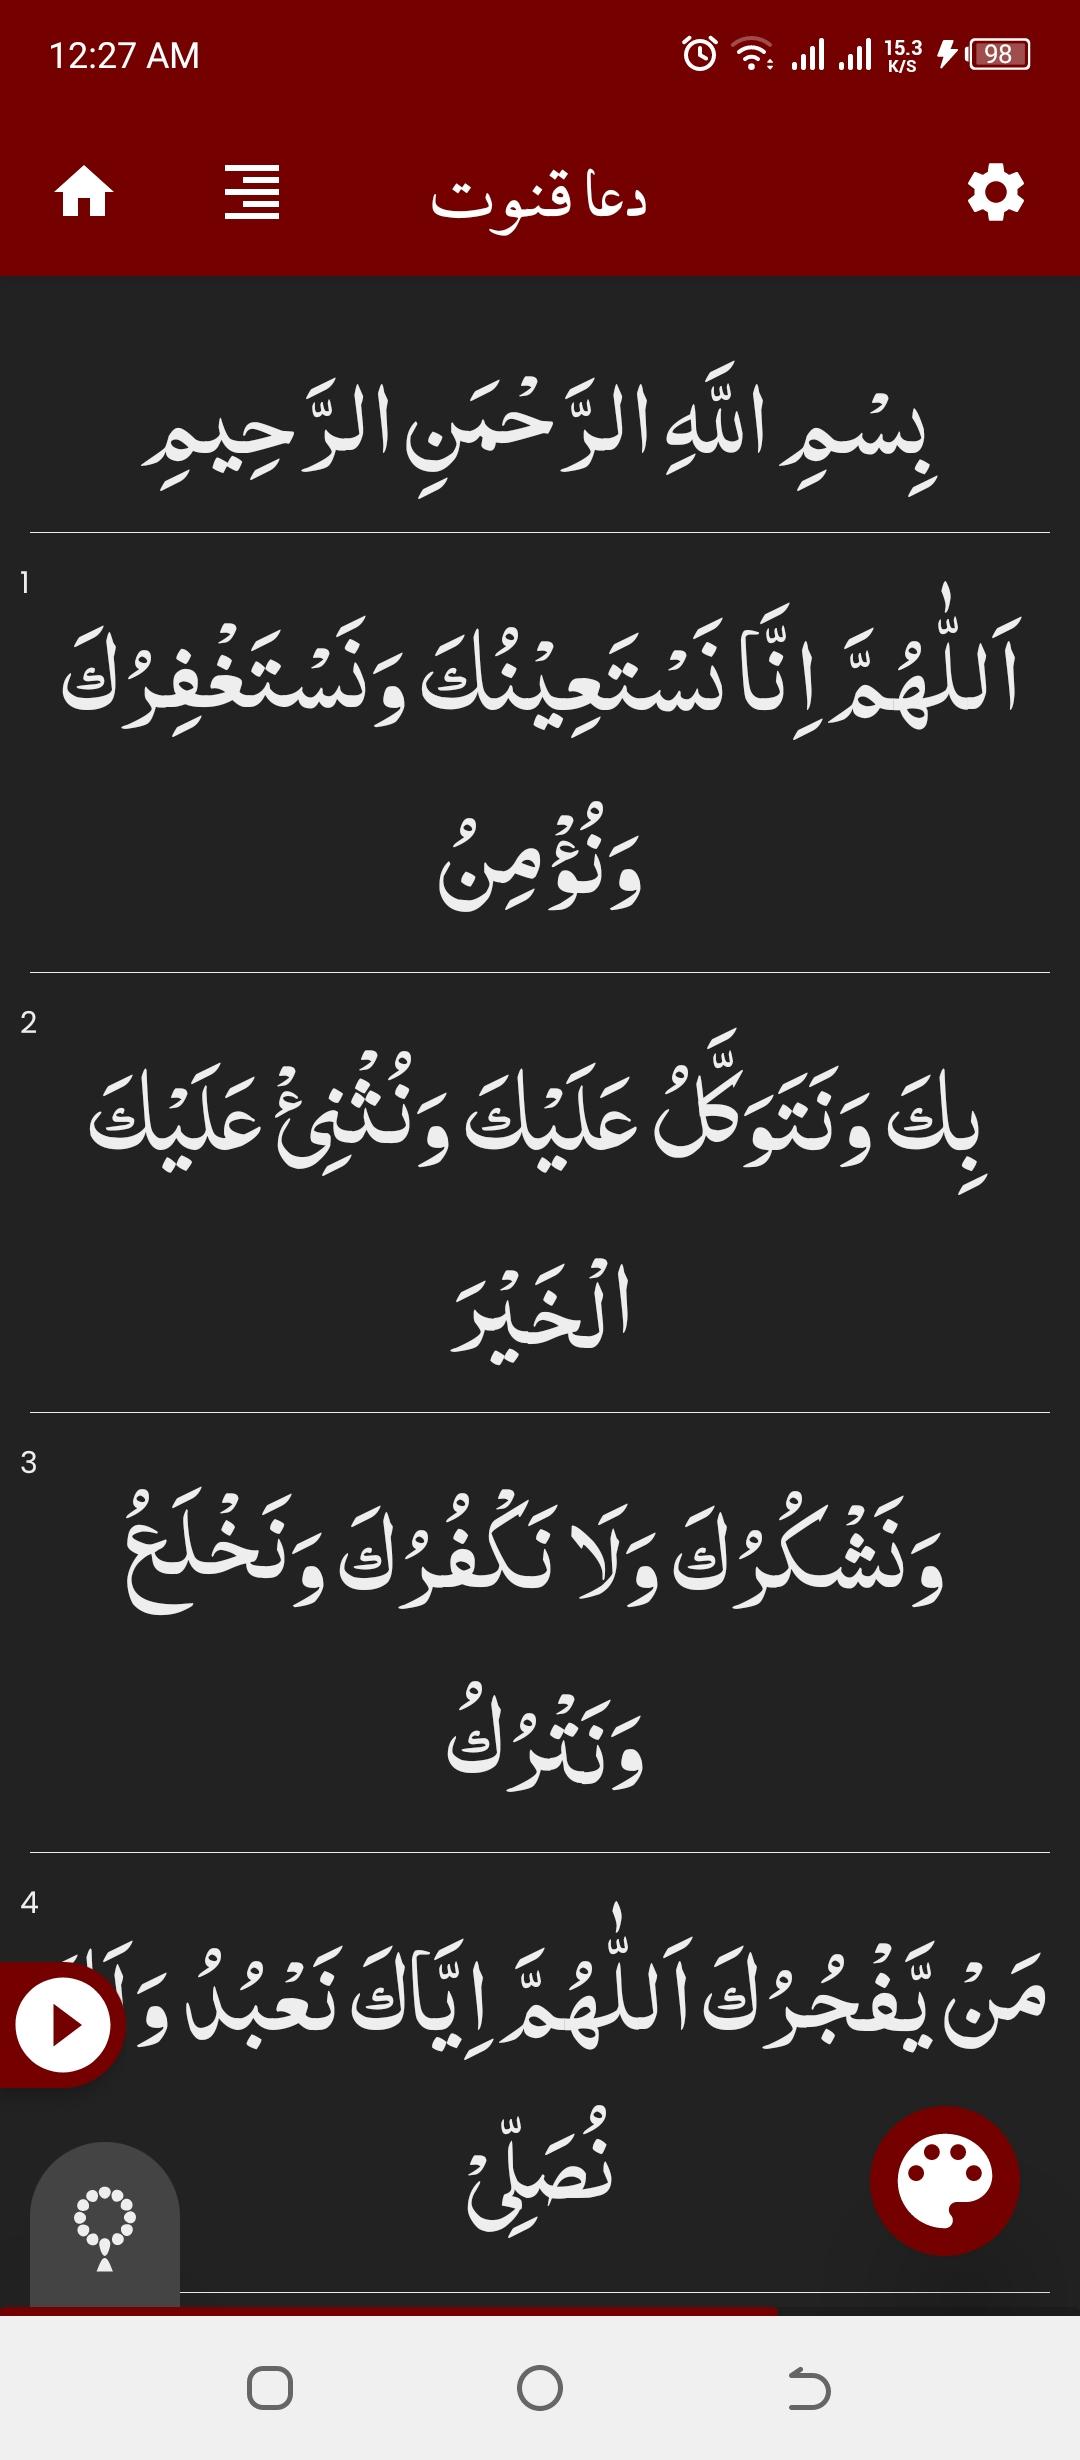 12:27 AM
15.3
K/S
98
دعا قنوت
بِسْمِ اللَّهِ الرَّحْمَنِ الرَّحِيمِ
1
اَللّٰهُمَّ اِنَّا نَسْتَعِيْنُكَ وَنَسْتَغْفِرُكَ
وَنُؤْمِنُ
2
بِكَ وَنَتَوَكَّلُ عَلَيْكَ وَنُثْنِئْ عَلَيْكَ
الْخَيْرَ
3
وَنَشْكُرُكَ وَلَا نَكْفُرُكَ وَنَخْلَعُ
وَنَتْرُكُ
4
مَنْ يَّفْجُرُكَ اَللّٰهُمَّ اِيَّاكَ نَعْبُدُ
نُصَلِّىْ